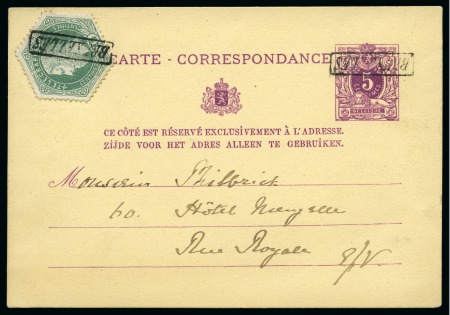 CARTE - CORRESPONDANCE
BRUXELLES
5
BELGIQUE
CE CÔTÉ EST RÉSERVÉ EXCLUSIVEMENT À L'ADRESSE.
ZIJDE VOOR HET ADRES ALLEEN TE GEBRUIKEN.
Monsieur Philbrick
60. Hôtel
Rue Royale
E/V.